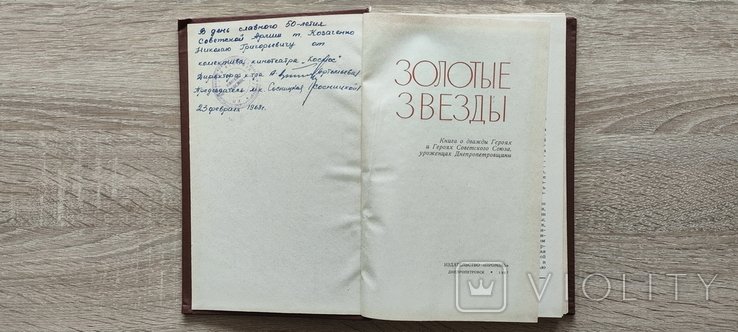 В день славного 50-летия
Советской Армии т. Козаченко
Николаю Григорьевичу от
коллектива кинотеатра „Космос"
Директор к-тра
Председатель м/к Сосницкая (Сосницкой)
23 февраля 1968 г.
ЗОЛОТЫЕ
ЗВЕЗДЫ
Книга о дважды Героях
и Героях Советского Союза,
уроженцах Днепропетровщины
ИЗДАТЕЛЬСТВО «ПРОМІНЬ»
ДНЕПРОПЕТРОВСК • 1967
VIOLITY